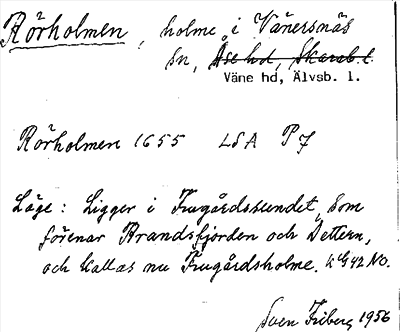 Rörholmen, holme i Vänersnäs
sn, Åse hd, Skarab. l.
Väne hd, Älvsb. l.
Rörholmen 1655 LSA P7
Läge: Ligger i Frugårdssundet, som
förenar Brandsfjorden och Dettern,
och kallas nu Frugårdsholme. K G 42 NO.
Sven Friberg 1956